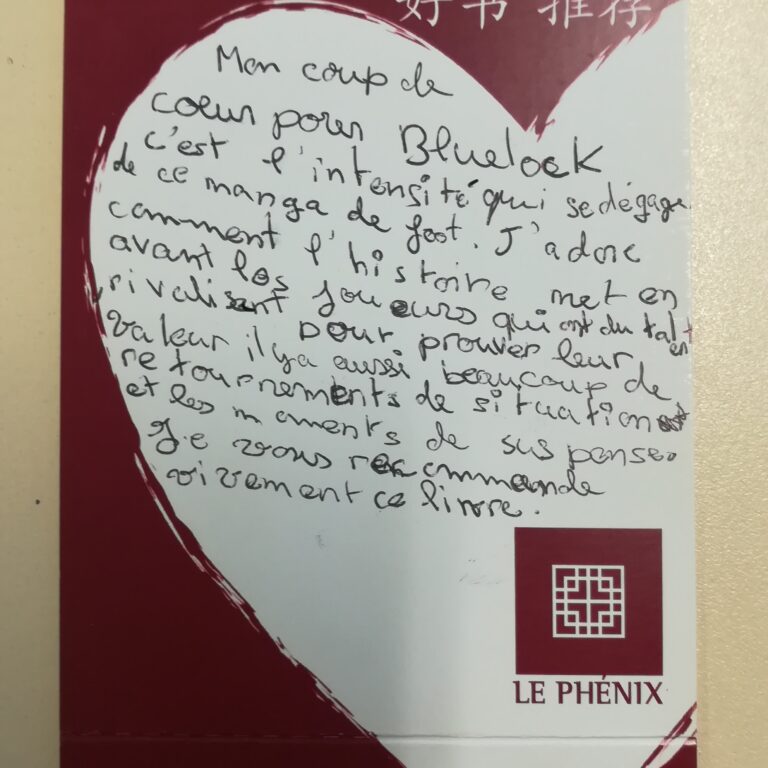 好书 推荐
Mon coup de
coeur pour Bluelock
c'est l'intensité qui se dégage
de ce manga de foot. J'adore
comment l'histoire met en
avant les joueurs qui ont du talent
rivalisant pour prouver leur
valeur il y a aussi beaucoup de
retournements de situation
et les moments de suspense.
Je vous recommande
vivement ce livre.
LE PHÉNIX